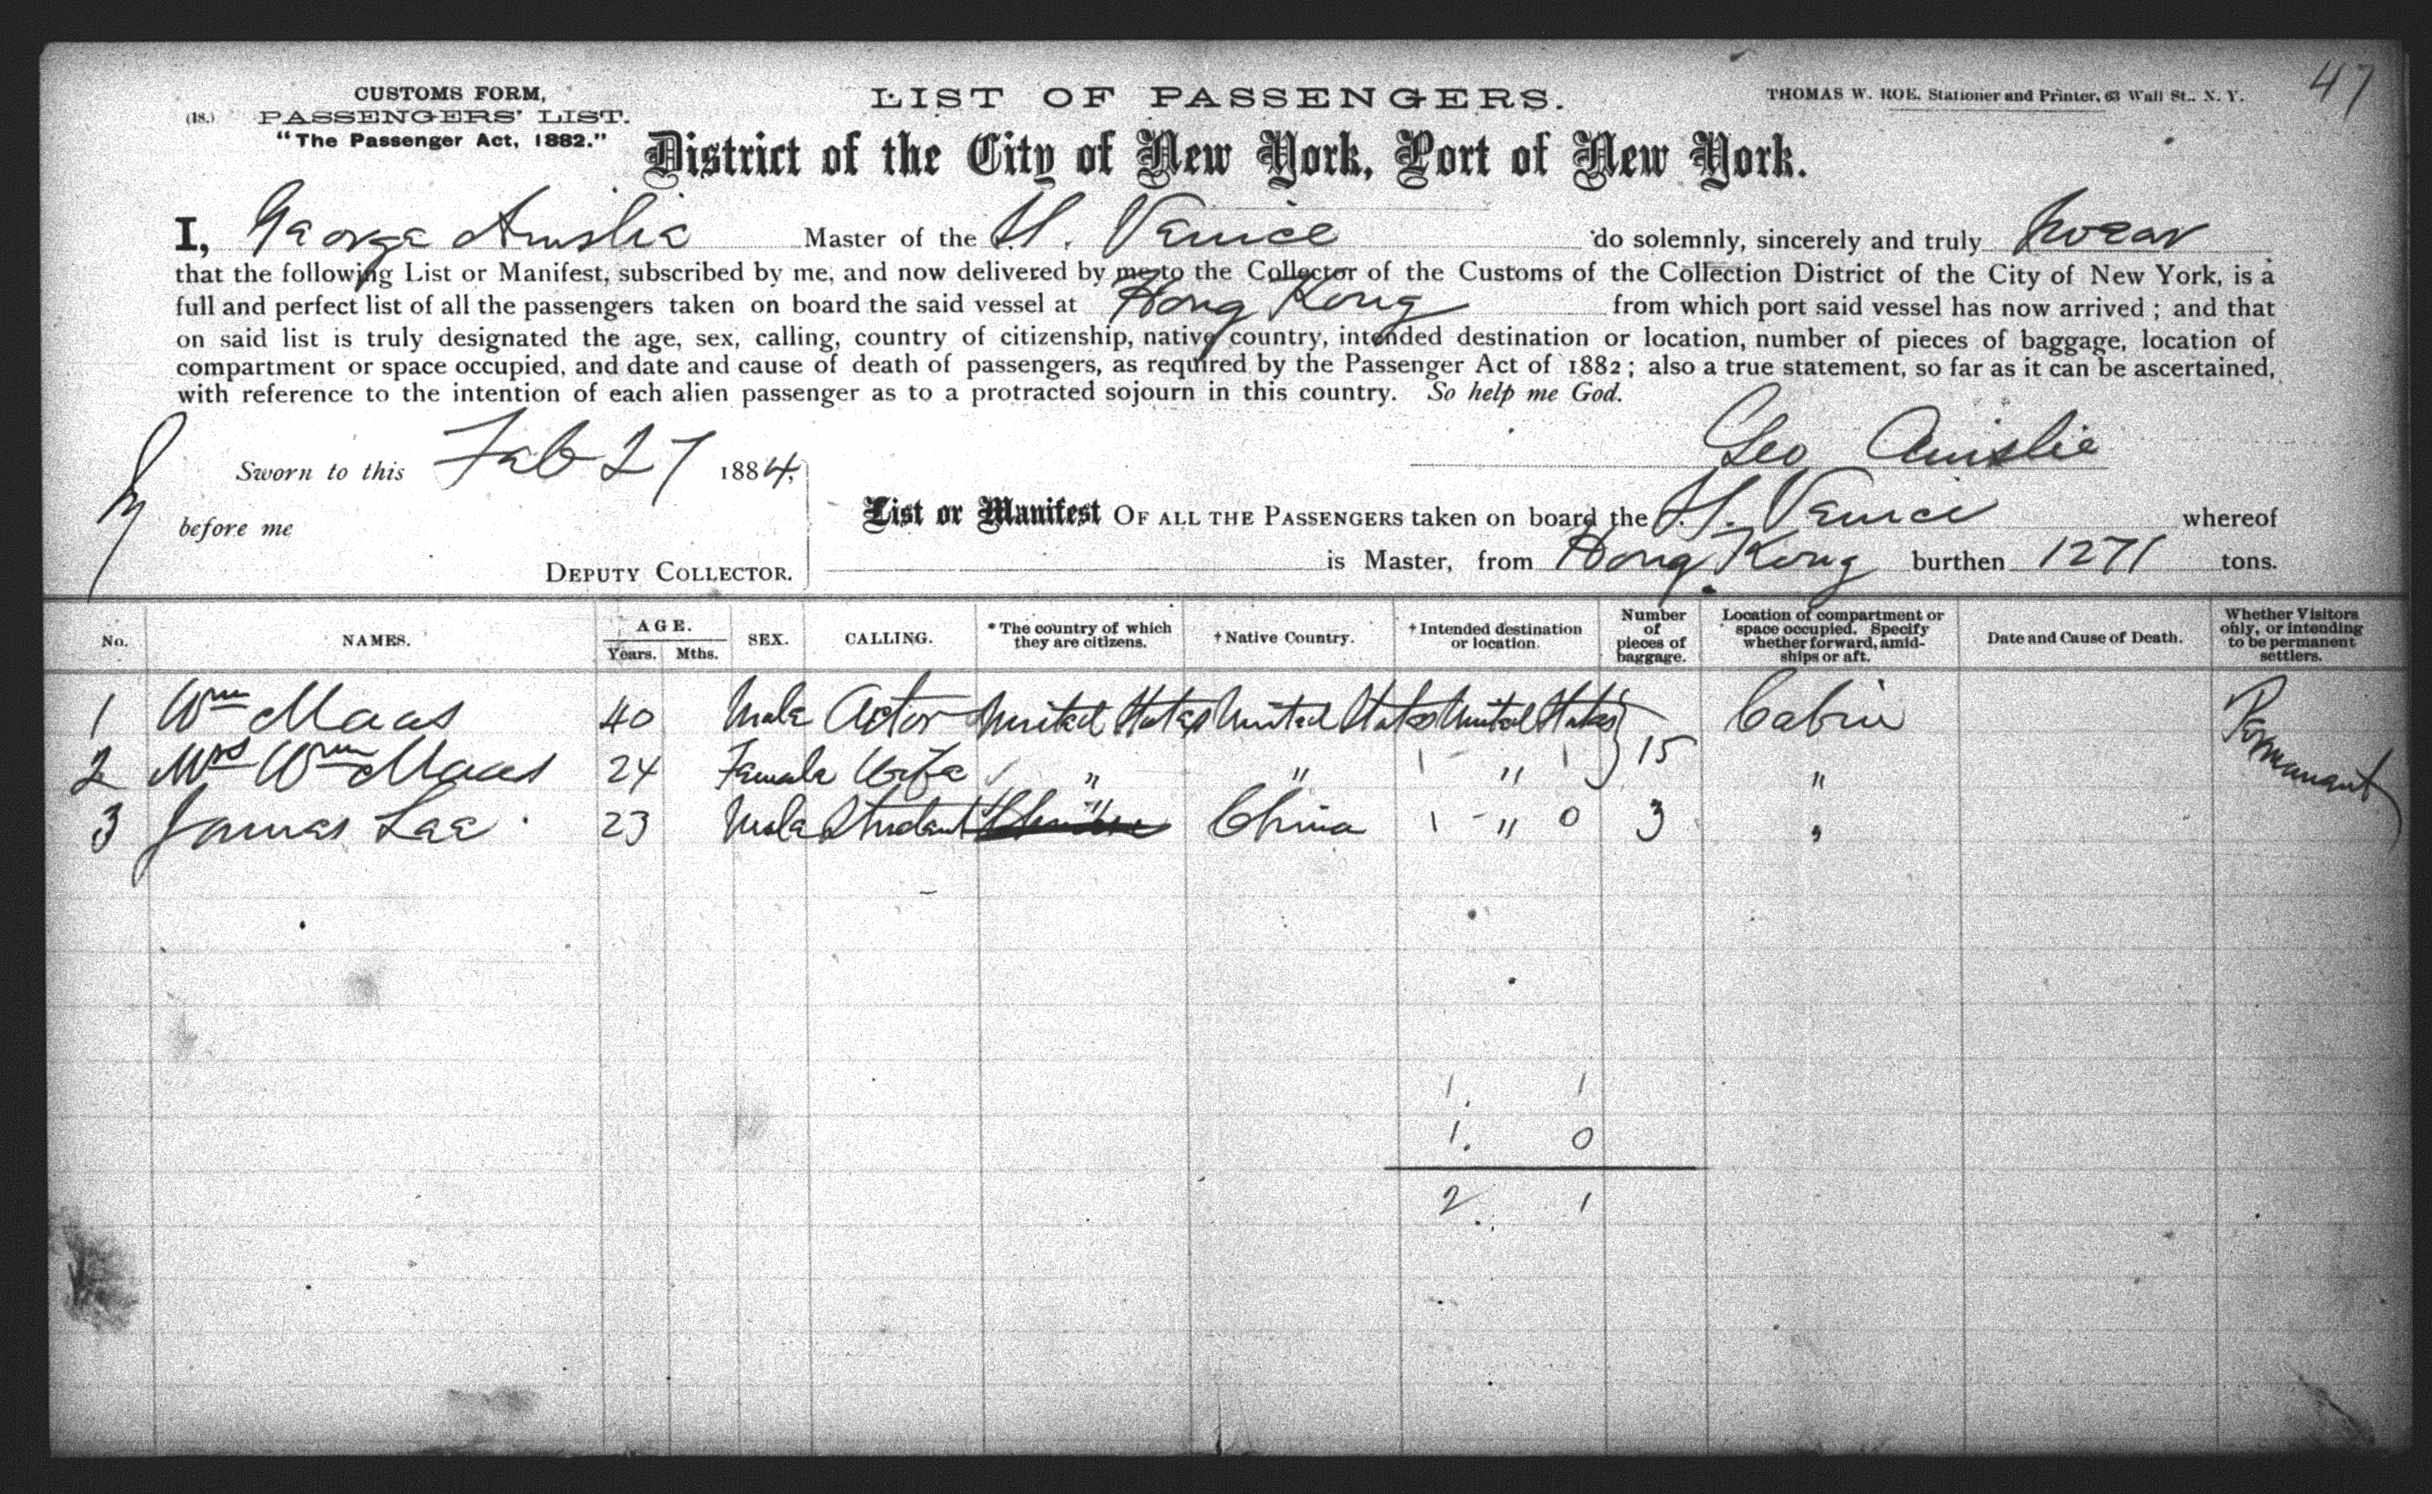 47
CUSTOMS FORM,
LIST OF PASSENGERS.
THOMAS W. ROE, Stationer and Printer, 63 Wall St., N. Y.
(18.) PASSENGERS' LIST.
"The Passenger Act, 1882."
District of the City of New York, Port of New York.
I, George Ainslie Master of the St. Venice do solemnly, sincerely and truly swear
that the following List or Manifest, subscribed by me, and now delivered by me to the Collector of the Customs of the Collection District of the City of New York, is a
full and perfect list of all the passengers taken on board the said vessel at Hong Kong from which port said vessel has now arrived; and that
on said list is truly designated the age, sex, calling, country of citizenship, native country, intended destination or location, number of pieces of baggage, location of
compartment or space occupied, and date and cause of death of passengers, as required by the Passenger Act of 1882; also a true statement, so far as it can be ascertained,
with reference to the intention of each alien passenger as to a protracted sojourn in this country. So help me God.
Geo Ainslie
Sworn to this Feb 27 1884,
before me
DEPUTY COLLECTOR.
List or Manifest OF ALL THE PASSENGERS taken on board the St. Venice whereof
is Master, from Hong Kong burthen 1271 tons.
No. NAMES. AGE. Years. Mths. SEX. CALLING. *The country of which they are citizens. †Native Country. †Intended destination or location. Number of pieces of baggage. Location of compartment or space occupied. Specify whether forward, amidships or aft. Date and Cause of Death. Whether Visitors only, or intending to be permanent settlers.
1 Wm Maas 40 Male Actor United States United States United States Cabin Permanent
2 Mrs Wm Maas 24 Female Wife " " 1 " 1 15 "
3 James Lee 23 Male Student " China 1 " 0 3 "
1. 1
1. 0
2. 1